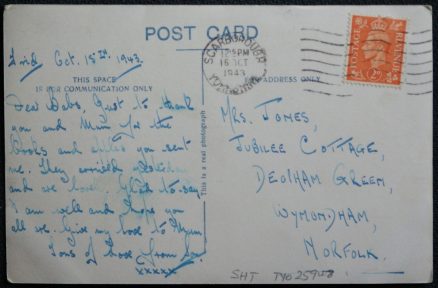 POST CARD
Frid. Oct. 15th. 1943.
THIS SPACE
IS FOR COMMUNICATION ONLY
ADDRESS ONLY
SCARBOROUGH
12 PM
15 OCT
1943
YORKSHIRE
POSTAGE
REVENUE
2D
Dear Babs, Just to thank
you and Mum for the
books and you sent
me. They arrived yesterday
and we have. Glad to say
I am well and hope you
all are. Give my love to Mum.
Tons of love from
xxxxx
This is a real photograph
Mrs. Jones,
Jubilee Cottage,
Deopham Green,
Wymondham,
Norfolk.
SHT